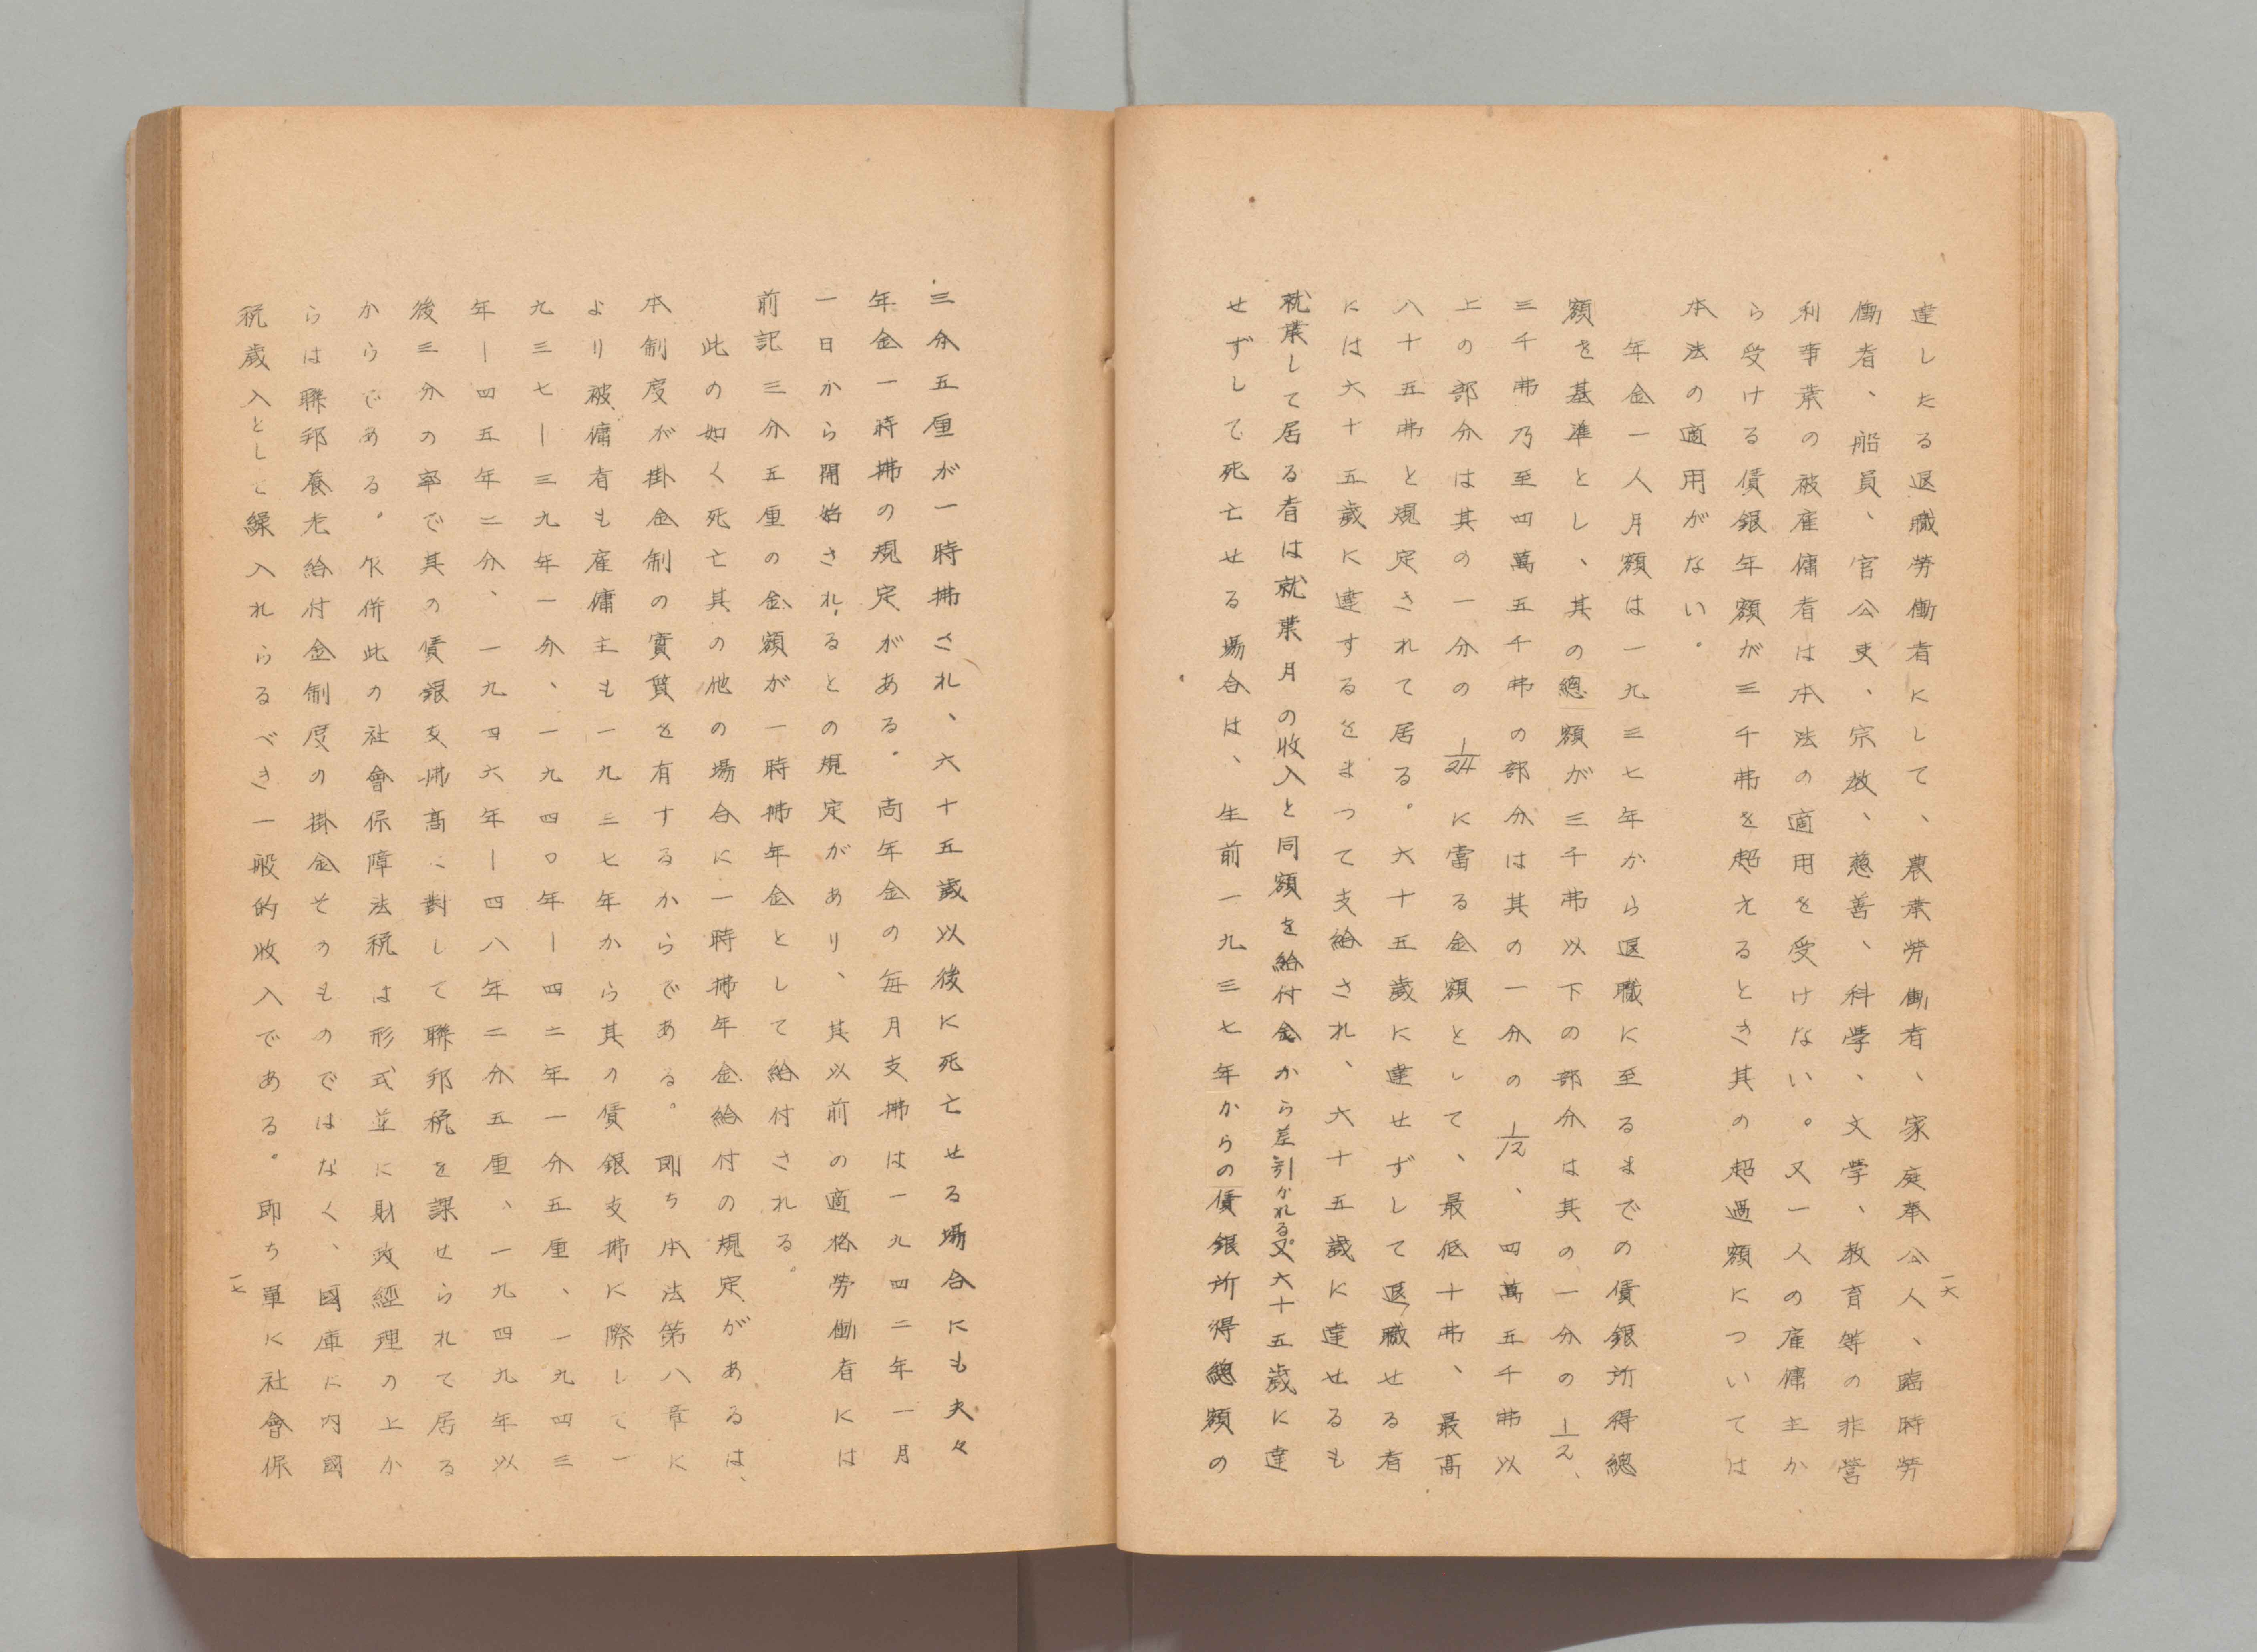 一六
達したる退職勞働者にして、農業勞働者、家庭奉公人、臨時勞
働者、船員、官公吏、宗教、慈善、科學、文學、教育等の非營
利事業の被雇傭者は本法の適用を受けない。又一人の雇傭主か
ら受ける賃銀年額が三千弗を超えるとき其の超過額については
本法の適用がない。
年金一人月額は一九三七年から退職に至るまでの賃銀所得總
額を基準とし、其の總額が三千弗以下の部分は其の一分の1/2、
三千弗乃至四萬五千弗の部分は其の一分の1/12、四萬五千弗以
上の部分は其の一分の1/24に當る金額として、最低十弗、最高
八十五弗と規定されて居る。六十五歲に達せずして退職せる者
には六十五歲に達するをまつて支給され、六十五歲に達せるも
就業して居る者は就業月の收入と同額を給付金から差引かれる。又六十五歲に達
せずして死亡せる場合は、生前一九三七年からの賃銀所得總額の
三分五厘が一時拂され、六十五歲以後に死亡せる場合にも夫々
年金一時拂の規定がある。尚年金の每月支拂は一九四二年一月
一日から開始されるとの規定があり、其以前の適格勞働者には
前記三分五厘の金額が一時拂年金として給付される。
此の如く死亡其の他の場合に一時拂年金給付の規定があるは、
本制度が掛金制の實質を有するからである。卽ち本法第八章に
より被傭者も雇傭主も一九三七年から其の賃銀支拂に際して一
九三七ー三九年一分、一九四〇年ー四二年一分五厘、一九四三
年ー四五年二分、一九四六年ー四八年二分五厘、一九四九年以
後三分の率で其の賃銀支拂高に對して聯邦稅を課せられて居る
からである。乍併此の社會保障法稅は形式並に財政經理の上か
らは聯邦養老給付金制度の掛金そのものではなく、國庫に內國
稅歲入として繰入れらるべき一般的收入である。卽ち單に社會保
一七